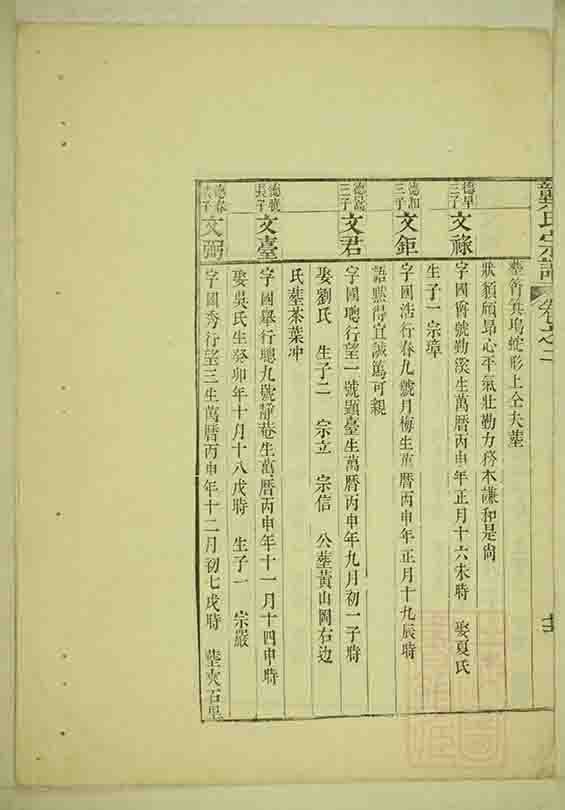 氏宗譜 卷之二
葬筲箕塢蛇形上仝夫墓
狀貌頎昂心平氣壯勤力務本謙和是尚
德早三子 文祿 字國 號勤溪生萬曆丙申年正月十六未時 娶夏氏
生子一 宗璋
德加三子 文鉅 字國浩行春九號月梅生萬曆丙申年正月十九辰時
語默得宜誠篤可親
三子 文君 字國聰行望一號顯臺生萬曆丙申年九月初一子時
娶劉氏 生子二 宗立 宗信 公葬黃山岡右边
氏葬茶葉冲
長子 文臺 字國舉行聰九號靜菴生萬曆丙申年十一月十四申時
娶吳氏生癸卯年十月十八戌時 生子一 宗嚴
德春 文弼 字國秀行望三生萬曆丙申年十二月初七戌時 葬夾石里